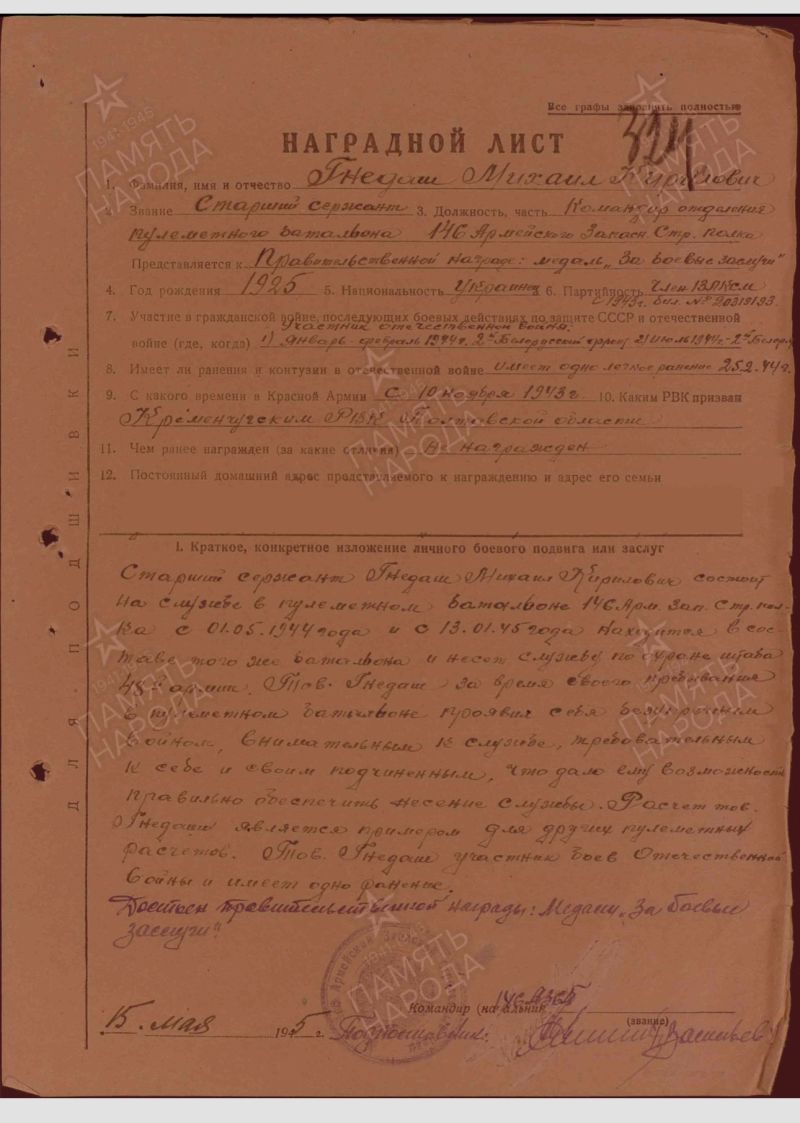 Все графы заполнить полностью
324
НАГРАДНОЙ ЛИСТ
1. Фамилия, имя и отчество Гнедаш Михаил Кирилович
2. Звание Старший сержант 3. Должность, часть Командир отделения
пулеметного батальона 146 Армейского Запасн. Стр. полка
Представляется к Правительственной награде: медаль „За боевые заслуги"
4. Год рождения 1925 5. Национальность Украинец 6. Партийность Член ВЛКСМ
с 1943г. бил. № 20319193
7. Участие в гражданской войне, последующих боевых действиях по защите СССР и отечественной
Участник отечественной войны:
войне (где, когда) 1) Январь-февраль 1944г. 2й Белорусский фронт 2) Июль 1944г-2й Белор.
8. Имеет ли ранения и контузии в отечественной войне имеет одно легкое ранение 25.2.44г.
9. С какого времени в Красной Армии С 10 ноября 1943г 10. Каким РВК призван
Кременчугским РВК Полтавской области
11. Чем ранее награжден (за какие отличия) Не награжден
12. Постоянный домашний адрес представляемого к награждению и адрес его семьи
I. Краткое, конкретное изложение личного боевого подвига или заслуг
Старший сержант Гнедаш Михаил Кирилович состоит
на службе в пулеметном батальоне 146 Арм. Зап. Стр. пол-
ка с 01.05.1944 года и с 13.01.45 года находится в сос-
таве того же батальона и несет службу по охране штаба
48й армии. Тов. Гнедаш за время своего пребывания
в пулеметном батальоне проявил себя безупречным
воином, внимательным к службе, требовательным
к себе и своим подчиненным, что дало ему возможность
правильно обеспечить несение службы. Расчет тов.
Гнедаш является примером для других пулеметных
расчетов. Тов. Гнедаш участник боев Отечественной
войны и имеет одно ранение.
Достоин правительственной награды: Медали „За боевые
заслуги"
Командир (начальник) 146 АЗСП
(звание)
15. мая 1945 г. Подполковник: Васильев
ДЛЯ ПОДШИВКИ
1941-1945
ПАМЯТЬ
НАРОДА